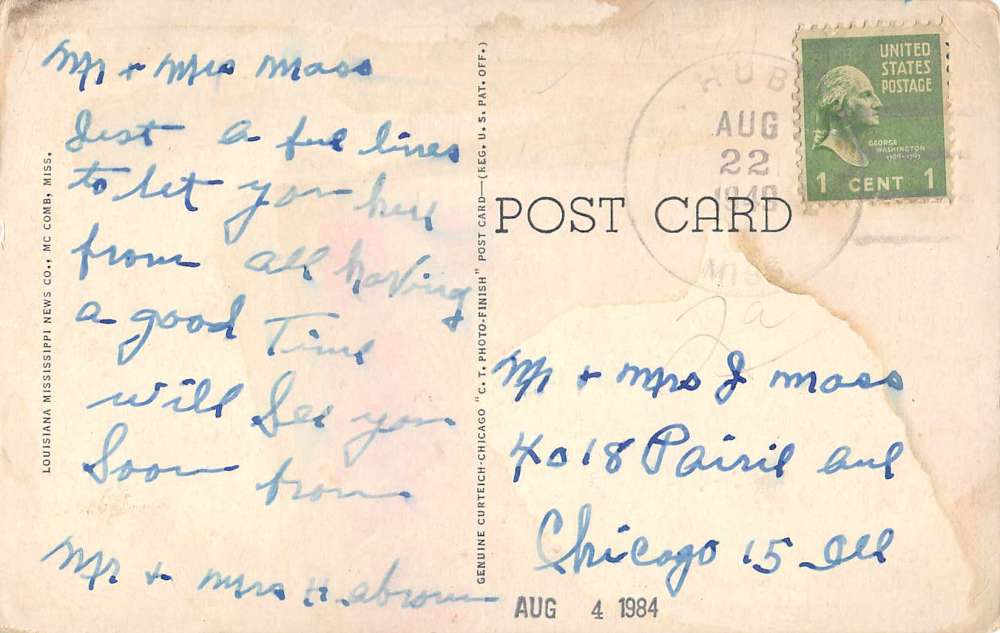 Mr + Mrs Mass
Just a few lines
to let you hear
from all having
a good Time
will See you
Soon from
Mr + Mrs
LOUISIANA MISSISSIPPI NEWS CO., MC COMB, MISS.
GENUINE CURTEICH-CHICAGO "C. T. PHOTO-FINISH" POST CARD—(REG. U. S. PAT. OFF.)
HUB
AUG
22
MISS
UNITED
STATES
POSTAGE
GEORGE
WASHINGTON
1789-1797
1 CENT 1
POST CARD
2a
Mr + Mrs J Mass
4018 Pairil
Chicago 15 Ill
AUG 4 1984